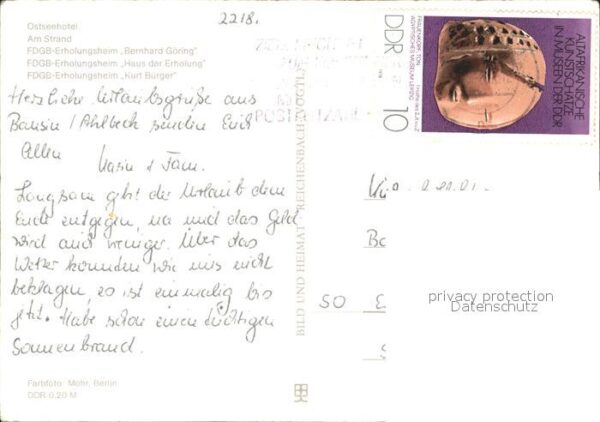 2218.
Ostseehotel
Am Strand
FDGB-Erholungsheim „Bernhard Göring"
FDGB-Erholungsheim „Haus der Erholung"
FDGB-Erholungsheim „Kurt Bürger"
Herzliche Urlaubsgrüße aus
Bansin / Ahlbeck senden Euch
Allen
Karin & Fam.
Langsam geht der Urlaub dem
Ende entgegen, na und das Geld
wird auch weniger. Über das
Wetter konnten wir uns nicht
beklagen, es ist einmalig bis
jetzt. Habe schon einen tüchtigen
Sonnenbrand.
Farbfoto: Mohr, Berlin
DDR 0,20 M
BILD UND HEIMAT REICHENBACH (VOGTL)
POSTLEITZAHL
DDR
10
FRAUENKOPF, TON
ÄGYPTISCHES MUSEUM LEIPZIG
ALTAFRIKANISCHE
KUNSTSCHÄTZE
IN MUSEEN DER DDR
50
privacy protection
Datenschutz